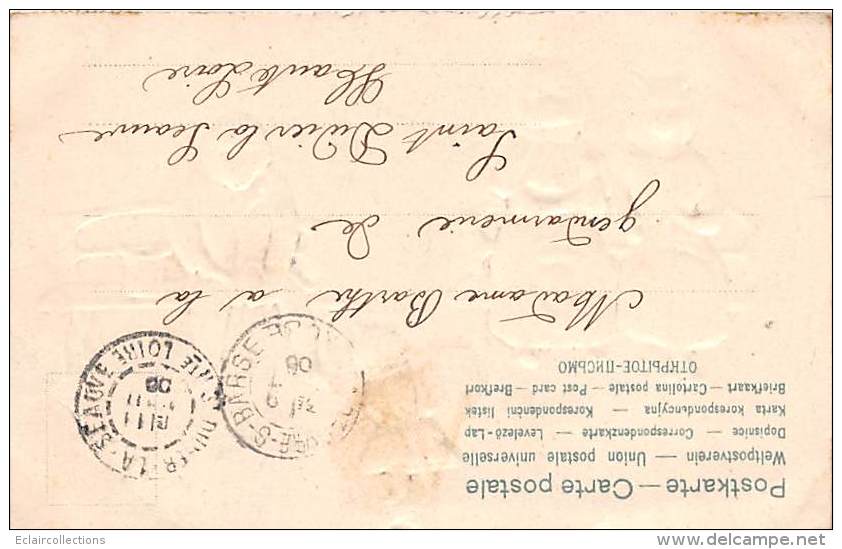 Postkarte — Carte postale
Weltpostverein — Union postale universelle
Dopisnice — Correspondenzkarte — Levelező-Lap
Karta korespondencyjna — Korespondenční listek
Briefkaart — Cartolina postale — Post card — Brefkort
ОТКРЫТОЕ-ПИСЬМО
Madame Barthe a la
gendarmerie de
Saint Didier la Seauve
Haute Loire
LA-SEAUVE
HTE LOIRE
BARSE
AUBE
06
Eclaircollections
delcampe.net